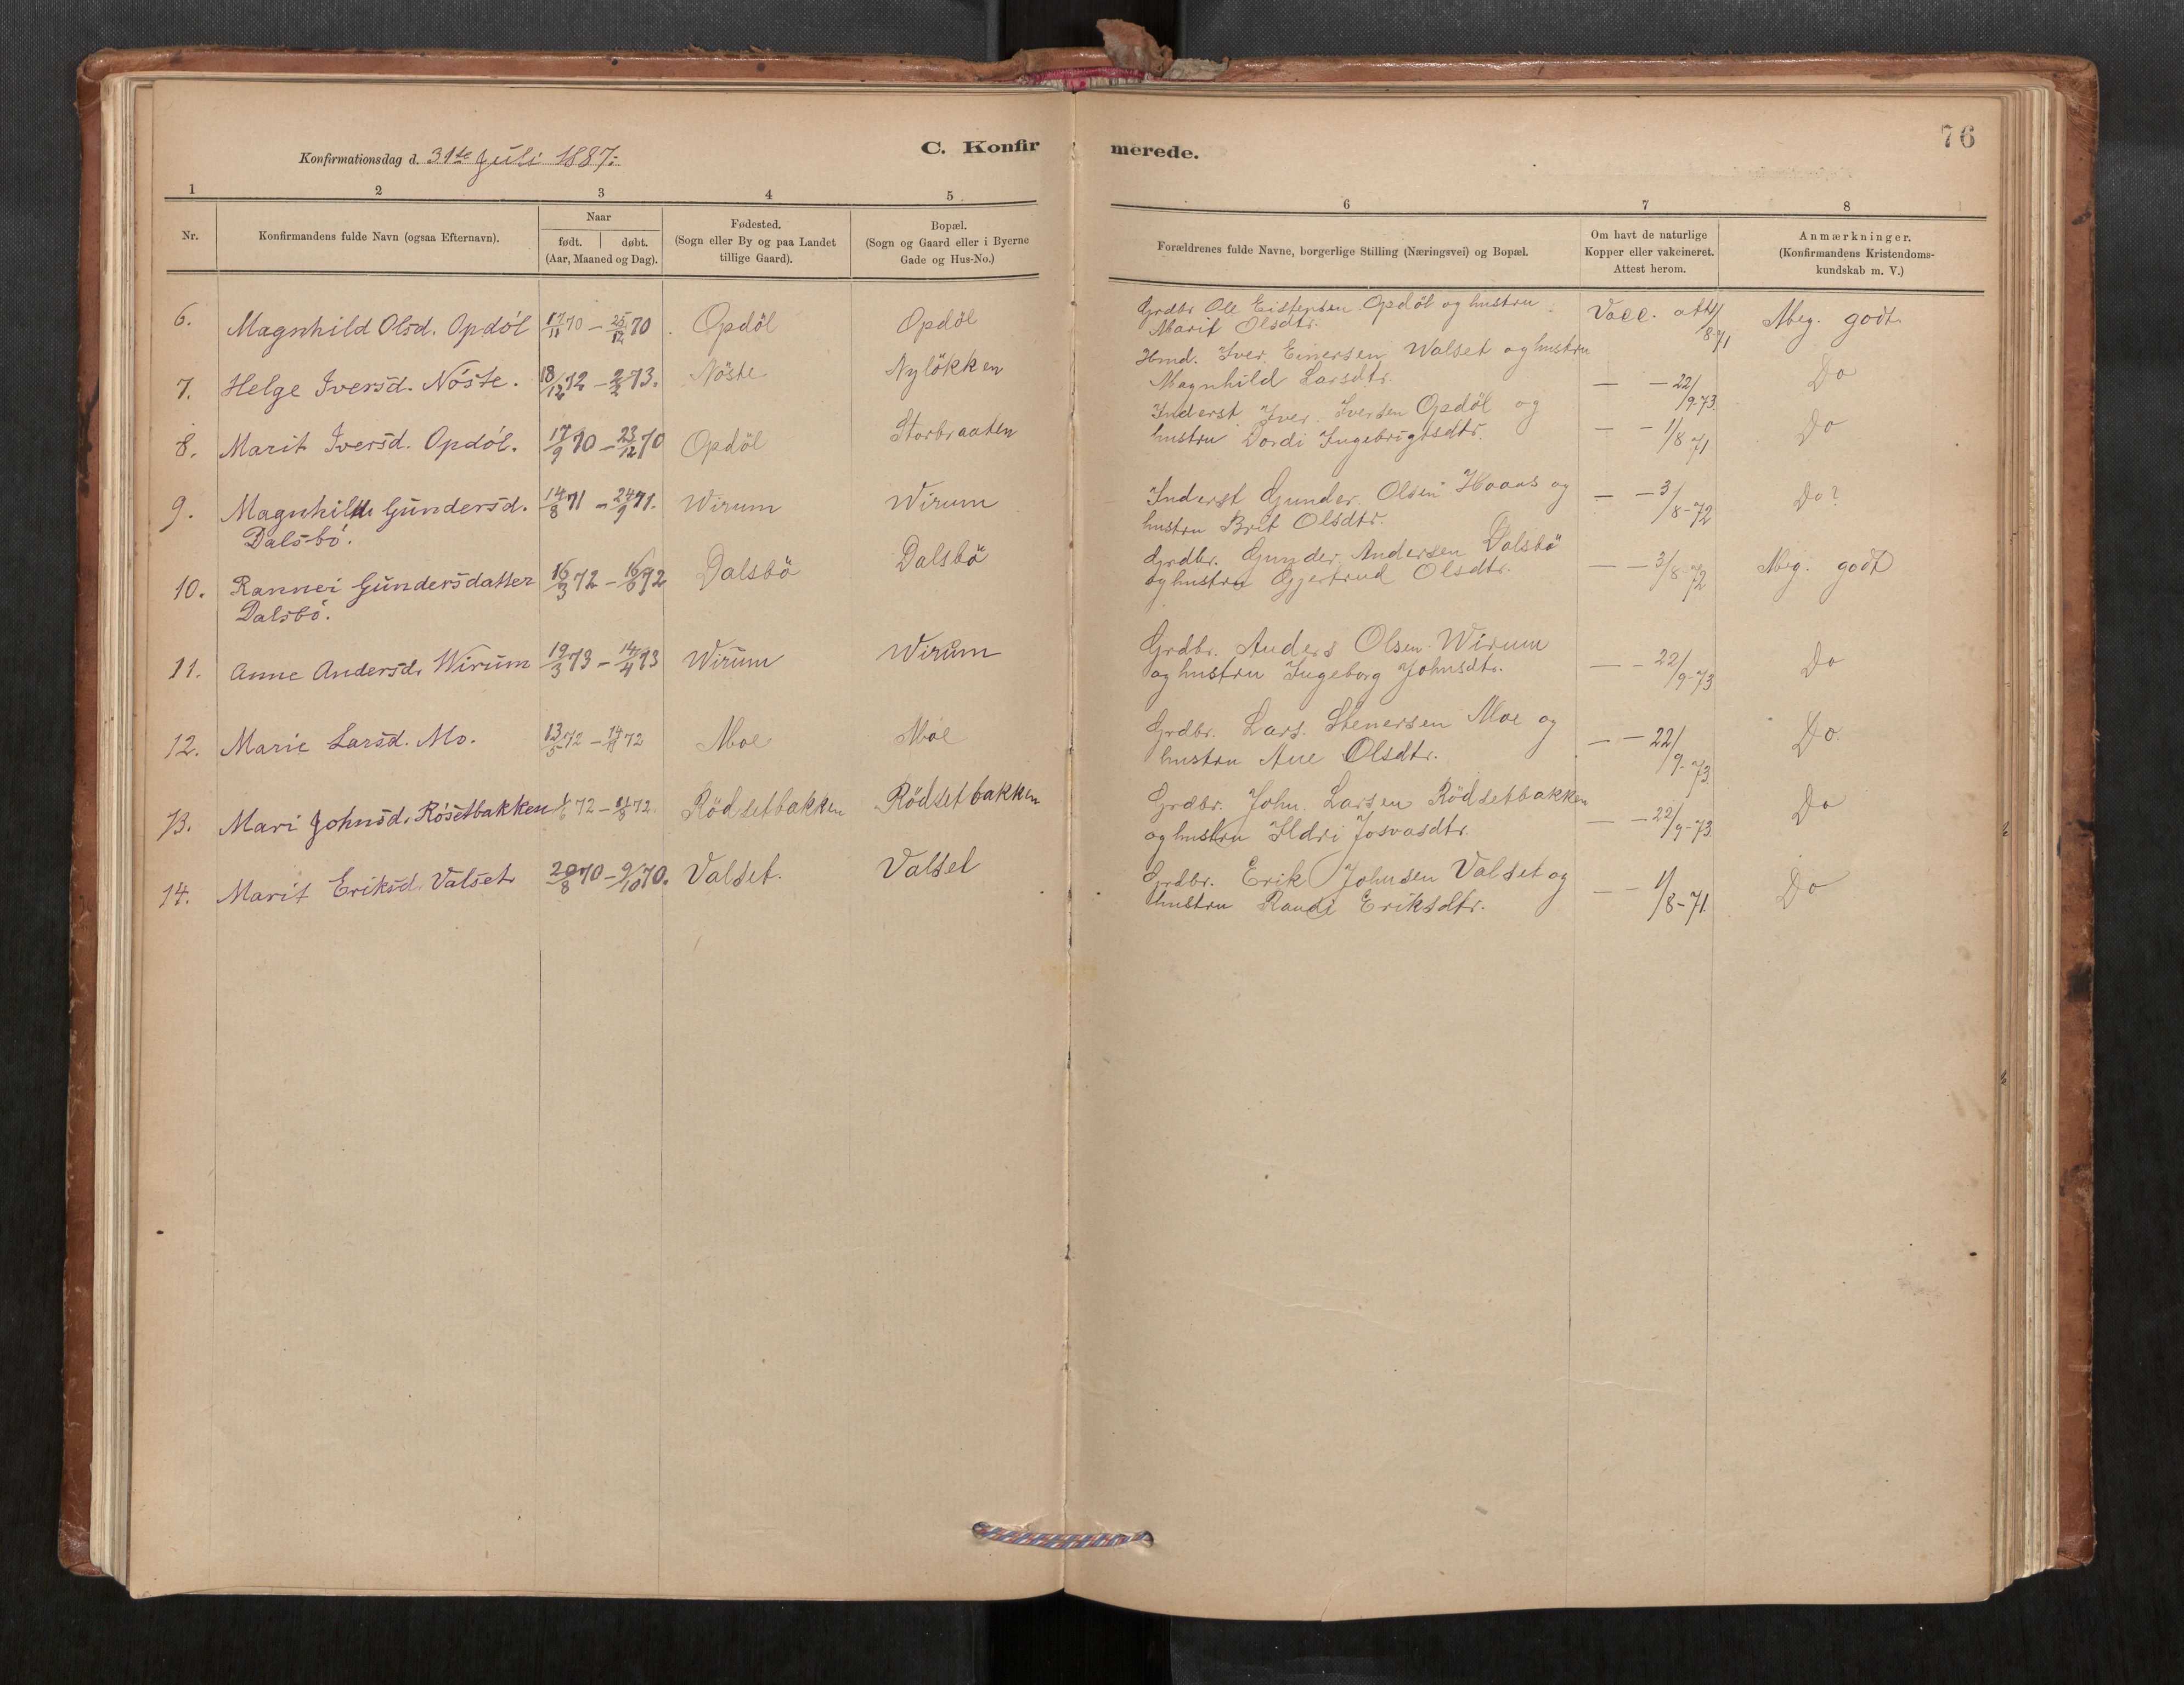 76
Konfirmationsdag d. 31te Juli 1887.
C. Konfirmerede.
1 2 3 4 5 6 7 8
Nr.
Konfirmandens fulde Navn (ogsaa Efternavn).
Naar
født. | døbt.
(Aar, Maaned og Dag).
Fødested.
(Sogn eller By og paa Landet
tillige Gaard).
Bopæl.
(Sogn og Gaard eller i Byerne
Gade og Hus-No.)
Forældrenes fulde Navne, borgerlige Stilling (Næringsvei) og Bopæl.
Om havt de naturlige
Kopper eller vakcineret.
Attest herom.
Anmærkninger.
(Konfirmandens Kristendoms-
kundskab m. V.)
6. Magnhild Olsd. Opdöl 17/11 70 – 25/12 70 Opdöl Opdöl
Grdbr Ole Eistensen Opdöl og hustru
Marit Olsdtr.
Vacc. att 1/8 71 Meg. godt
7. Helge Iversd. Nöste. 18/12 72 – 2/2 73. Nöste Nylökken
Hmd. Iver Einersen Walset og hustru
Magnhild Larsdtr.
— – 22/9-73 Do
8. Marit Iversd. Opdöl. 17/9 70 – 23/12 70 Opdöl Storbraaten
Inderst Iver Iversen Opdöl og
hustru Dordi Ingebrigtsdtr.
— – 1/8 71 Do
9. Magnhild Gundersd. 14/8 71 – 24/9 71. Wirum Wirum
Dalsbö.
Inderst Gunder Olsen Haaas og
hustru Brit Olsdtr.
— – 3/8-72 Do?
10. Rannei Gundersdatter 16/3 72 – 16/6 72 Dalsbö Dalsbö
Dalsbö.
Grdbr. Gunder Andersen Dalsbö
og hustru Gjertrud Olsdtr.
— – 3/8-72 Meg. godt
11. Anne Andersd. Wirum 19/3 73 – 14/4 73 Wirum Wirum
Grdbr. Anders Olsen Wirum
og hustru Ingeborg Johnsdtr.
— – 22/9-73 Do
12. Marie Larsd. Mo. 13/5 72 – 72 Moe Moe
Grdbr. Lars Stenersen Moe og
hustru Ane Olsdtr.
— – 22/9-73 Do
13. Mari Johnsd. Rösetbakken 1/6 72 – 11/8 72. Rödsetbakken Rödsetbakken
Grdbr. John Larsen Rödsetbakken
og hustru Ildri Josvasdtr.
— – 22/9-73 Do
14. Marit Eriksd. Valset 20/8 70 – 9/10 70. Valset. Valset
Grdbr. Erik Johnsen Valset og
hustru Randi Eriksdtr.
— – 1/8-71. Do